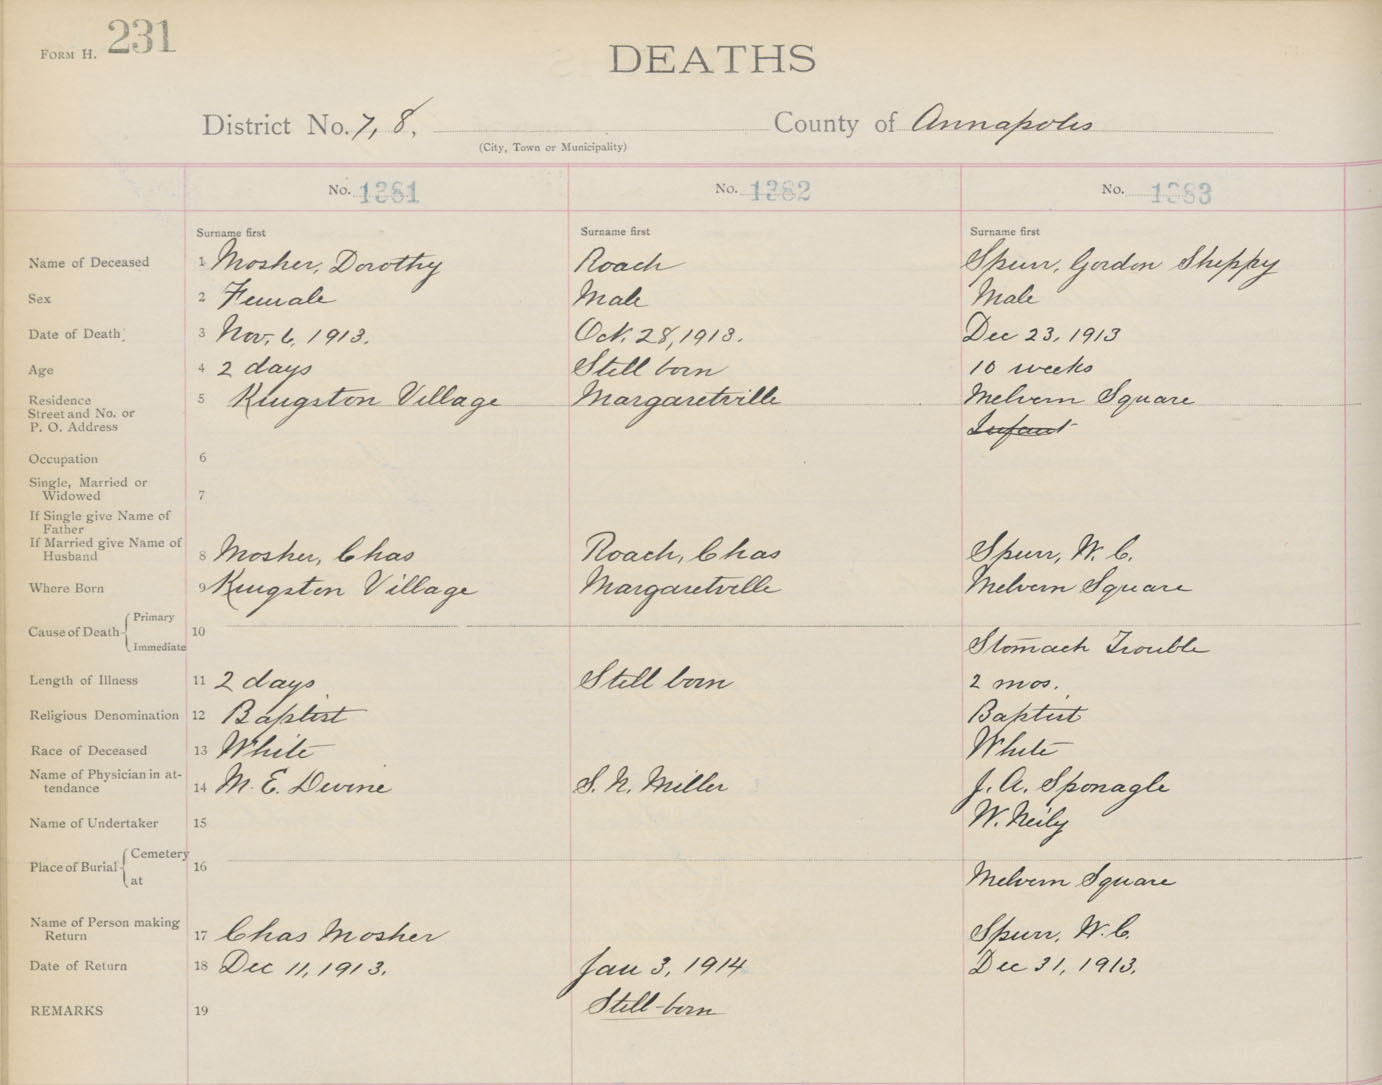 FORM H. 231
DEATHS
District No. 7, 8, County of Annapolis
(City, Town or Municipality)
No. 1381 No. 1382 No. 1383
Surname first Surname first Surname first
Name of Deceased 1 Mosher, Dorothy Roach Spurr, Gordon Sheppy
Sex 2 Female Male Male
Date of Death 3 Nov. 6, 1913. Oct. 28, 1913. Dec 23, 1913
Age 4 2 days Still born 10 weeks
Residence 5 Kingston Village Margaretville Melvern Square
Street and No. or
P. O. Address Infant
Occupation 6
Single, Married or
Widowed 7
If Single give Name of
Father
If Married give Name of
Husband 8 Mosher, Chas Roach, Chas Spurr, W. C.
Where Born 9 Kingston Village Margaretville Melvern Square
Primary
Cause of Death 10
Immediate Stomach Trouble
Length of Illness 11 2 days Still born 2 mos.
Religious Denomination 12 Baptist Baptist
Race of Deceased 13 White White
Name of Physician in at-
tendance 14 M. E. Devine S. N. Miller J. A. Sponagle
Name of Undertaker 15 W. Neily
Cemetery
Place of Burial 16
at Melvern Square
Name of Person making
Return 17 Chas Mosher Spurr, W. C.
Date of Return 18 Dec 11, 1913. Jan 3, 1914 Dec 31, 1913.
REMARKS 19 Still-born